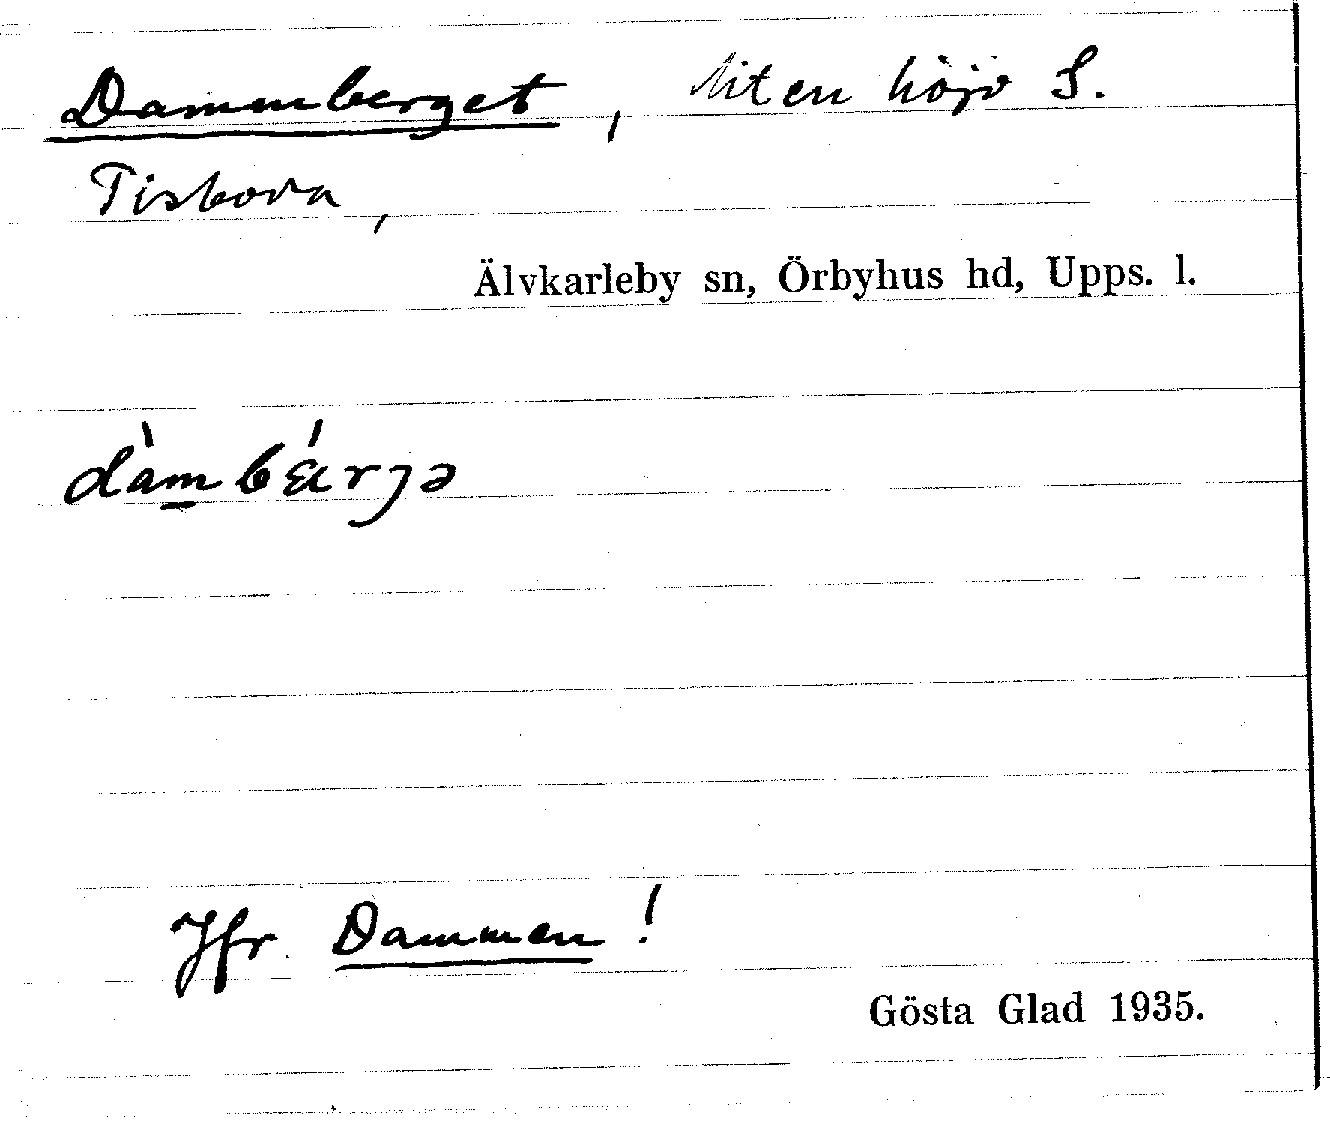 Dammberget, liten höjd S.
Tisbova,
Älvkarleby sn, Örbyhus hd, Upps. l.
dàmbǽrjə
Jfr Dammen!
Gösta Glad 1935.